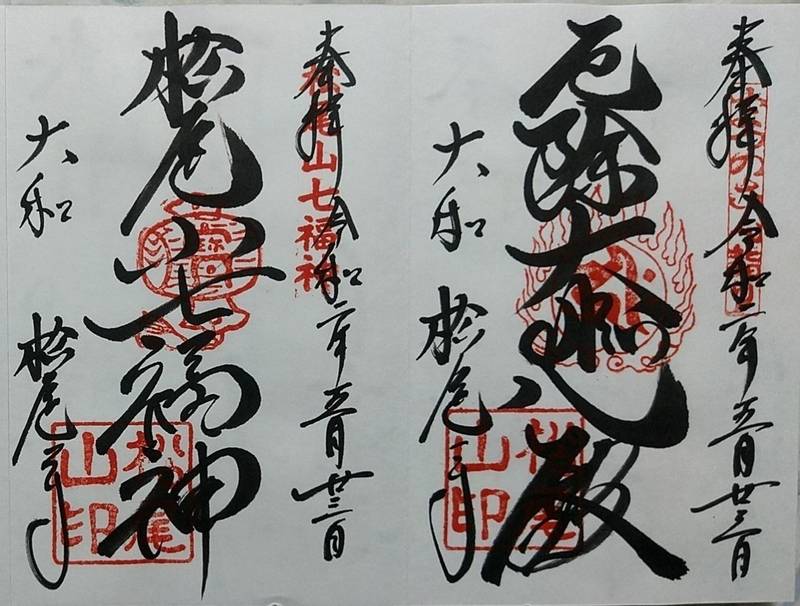 奉拝 令和二年五月廿三日
厄除大悲殿
大和 松尾寺
松尾山印
奉拝 令和二年五月廿三日
松尾山七福神
松尾山七福神
大和 松尾寺
松尾山印